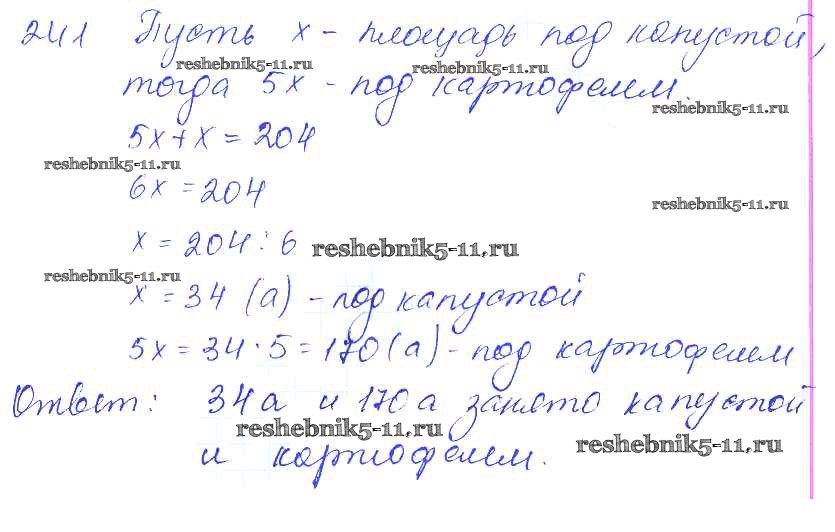 241 Пусть x - площадь под капустой,
reshebnik5-11.ru reshebnik5-11.ru
тогда 5x - под картофелем.
reshebnik5-11.ru
5x+x=204
reshebnik5-11.ru
6x=204
reshebnik5-11.ru
x=204:6 reshebnik5-11.ru
reshebnik5-11.ru
x=34 (а) - под капустой
5x=34·5=170(а) - под картофелем
Ответ: 34а и 170а занято капустой
reshebnik5-11.ru
и картофелем. reshebnik5-11.ru